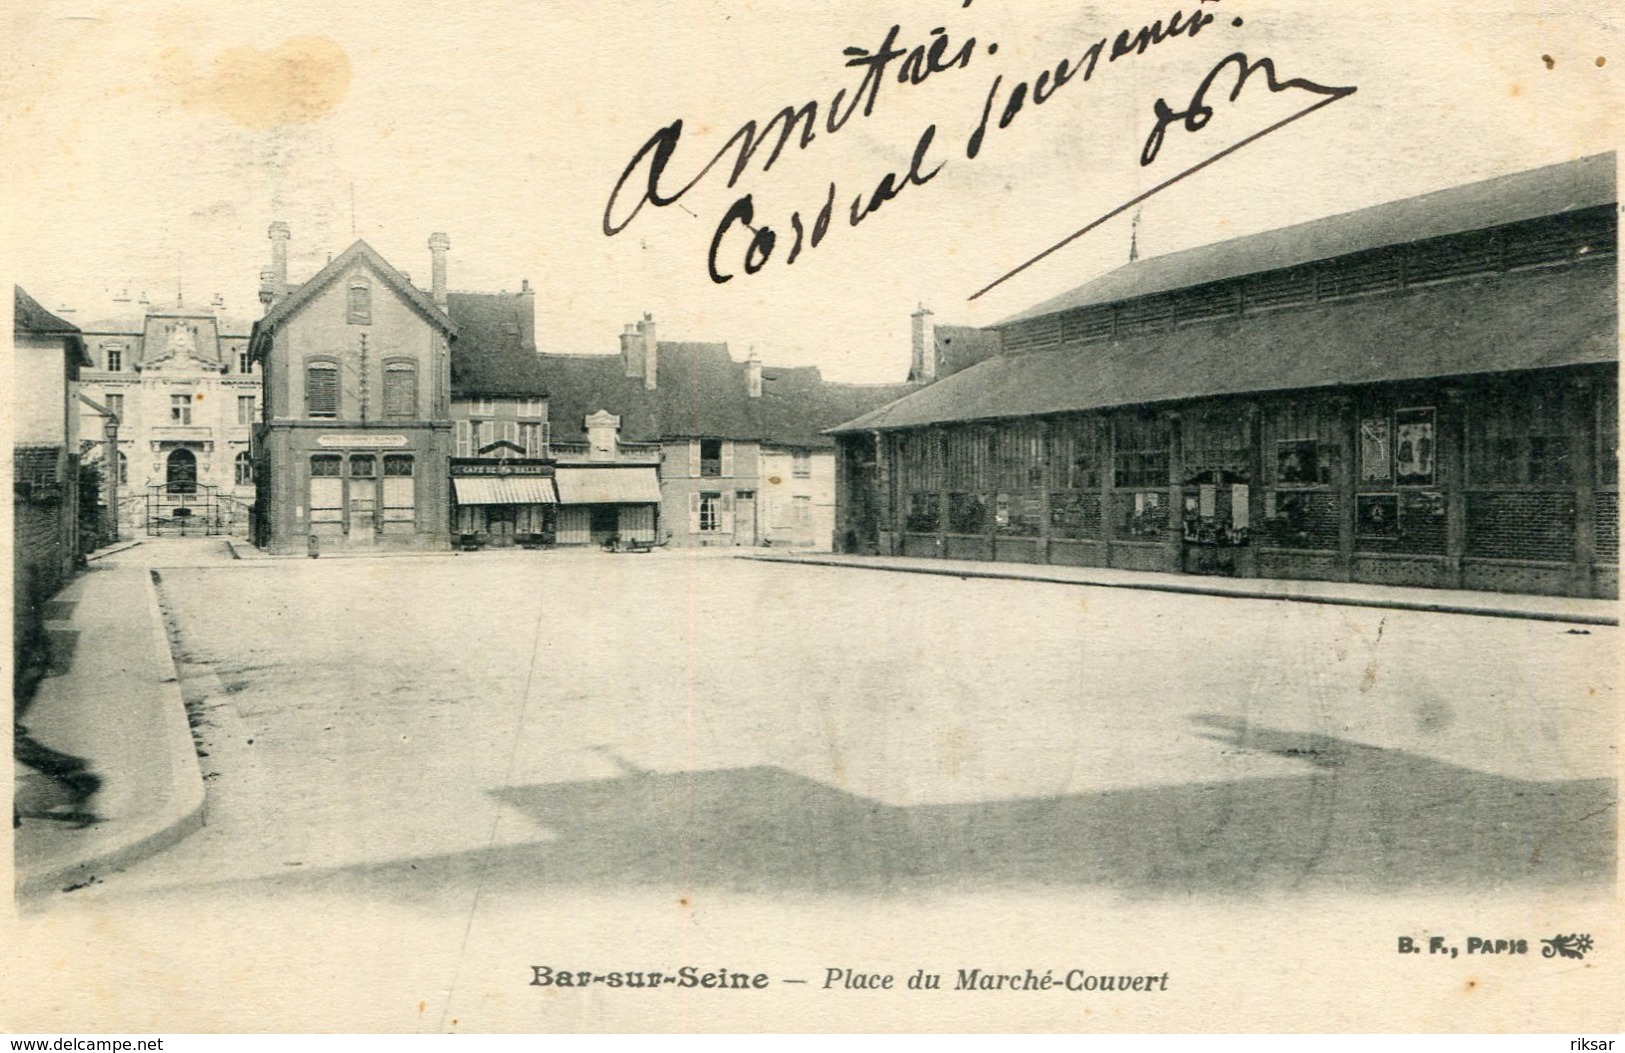 Amitiés.
Cordial souvenir.
CAFE DE LA HALLE
B. F., PARIS
Bar-sur-Seine — Place du Marché-Couvert
www.delcampe.net
riksar